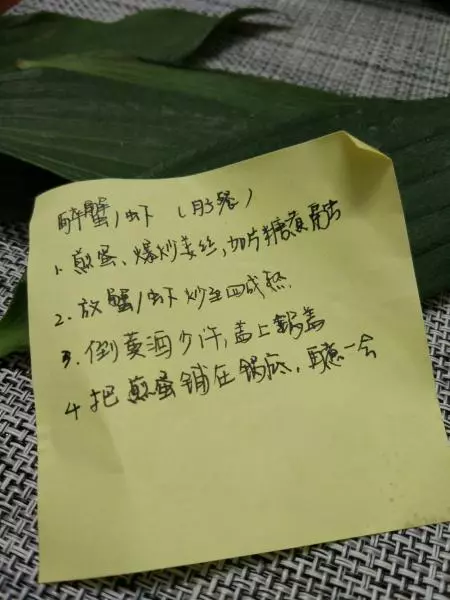 醉蟹/虾 (月子餐)
1. 煎蛋、爆炒姜丝,加片糖煮
2. 放蟹/虾炒至四成熟.
3. 倒姜酒少许,盖上锅盖
4. 把煎蛋铺在锅底,再一会